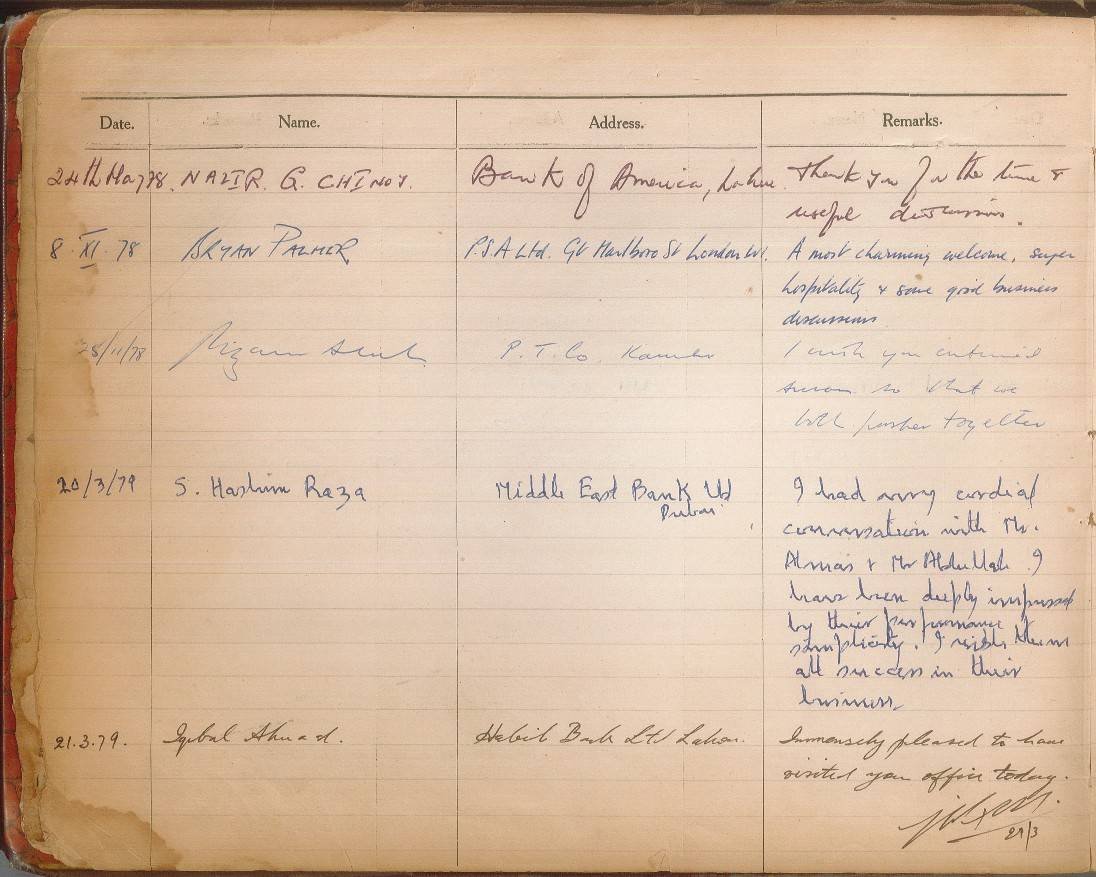 Date. Name. Address. Remarks.
24th May 78. NAZIR. G. CHINOY. Bank of America, Lahore. Thank you for the time &
useful discussion.
8. XI. 78 BRYAN PALMER P.S.A Ltd. Gt Marlboro St London W1. A most charming welcome, super
hospitality & some good business
discussions
/11/78 P. T. Co. I wish you continued
so that we
both prosper together
20/3/79 S. Hashim Raza Middle East Bank Ltd I had very cordial
Dubai
conversation with Mr.
Almas & Mr Abdullah. I
have been deeply impressed
by their performance &
simplicity. I wish them
all success in their
business
21.3.79. Iqbal Ahmad. Habib Bank Ltd Lahore. Immensely pleased to have
visited your office today.
21/3